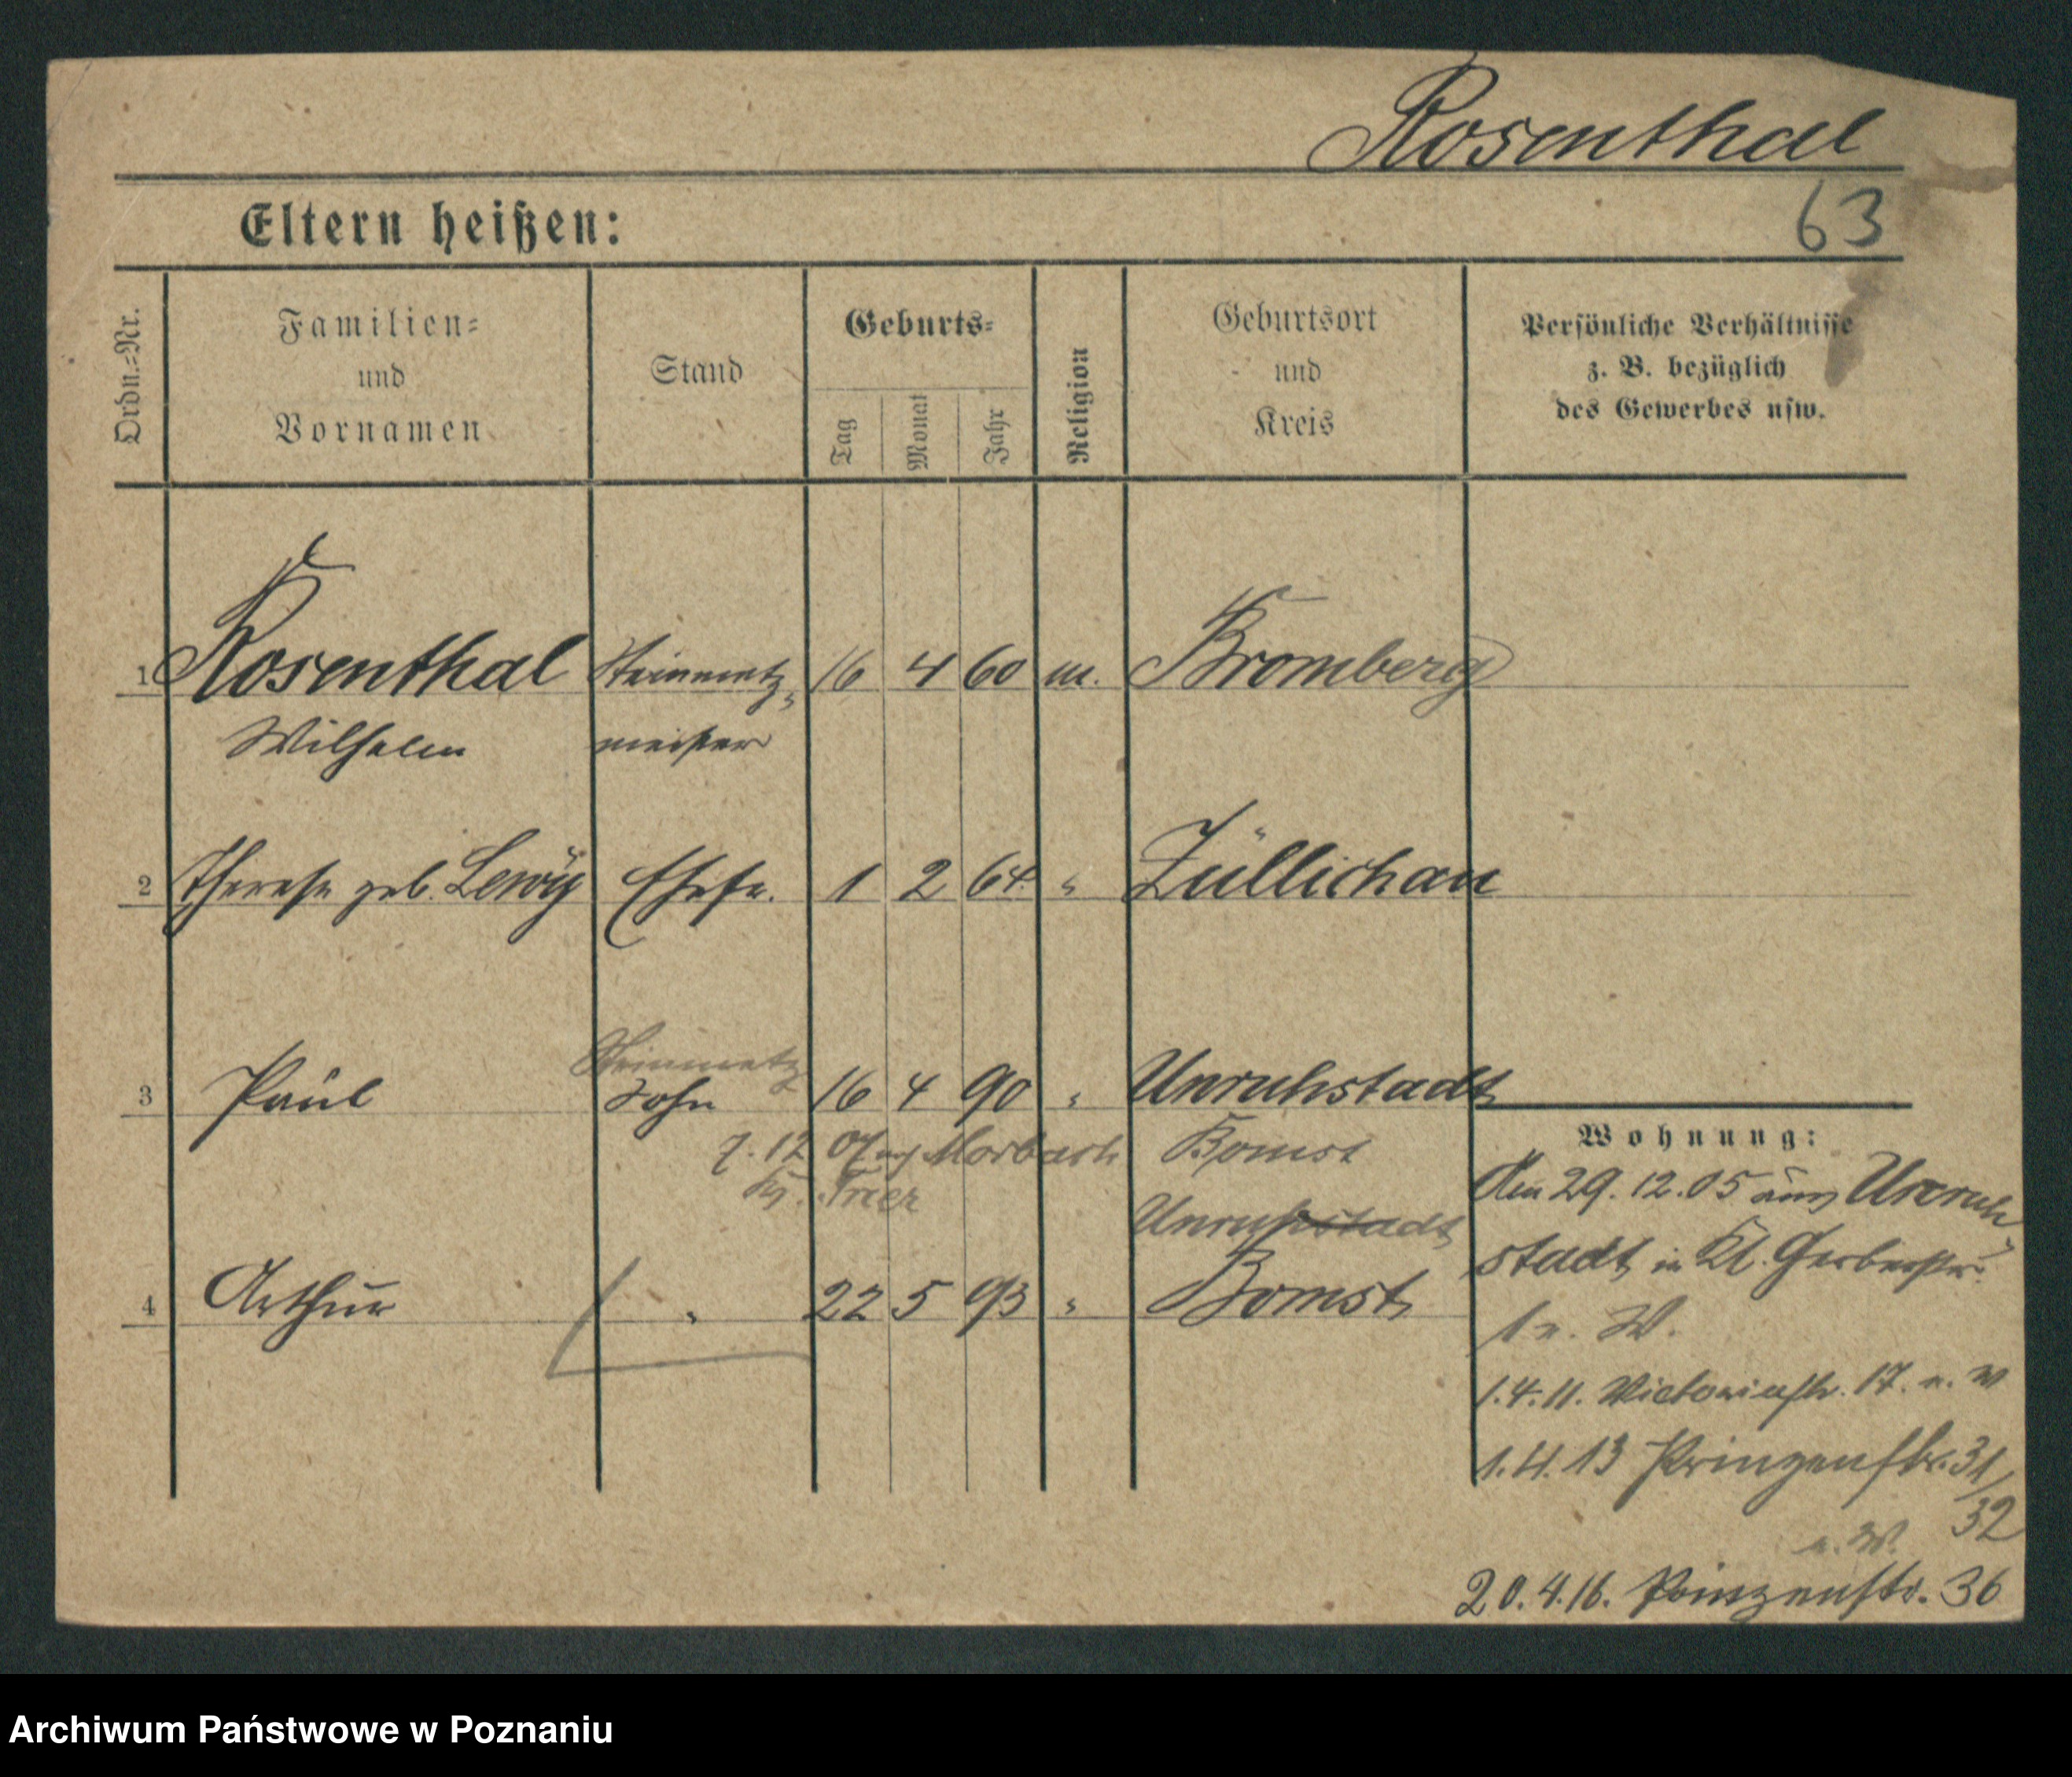 Rosenthal
Eltern heißen:
63
Ordn.=Nr.
Familien=
und
Vornamen
Stand
Geburts=
Tag
Monat
Jahr
Religion
Geburtsort
und
Kreis
Persönliche Verhältnisse
z. B. bezüglich
des Gewerbes usw.
1 Rosenthal Steinmetz= 16 4 60 m. Bromberg
Wilhelm meister
2 Therese geb. Lewÿ Ehefr. 1 2 64 " Züllichau
Steinmetz
3 Paul Sohn 16 4 90 " Unruhstadt
7. 12 07 Morbach Bomst
Kr. Trier
Unruhstadt
4 Arthur " 22 5 93 " Bomst
Wohnung:
Am 29.12.05 aus Unruh=
stadt in Kl. Gerberstr.
1 n. W.
1.4.11. Victoriastr. 17. n. W
1.4.13 Prinzenstr. 31/
32
n. W.
20.4.16. Prinzenstr. 36
Archiwum Państwowe w Poznaniu